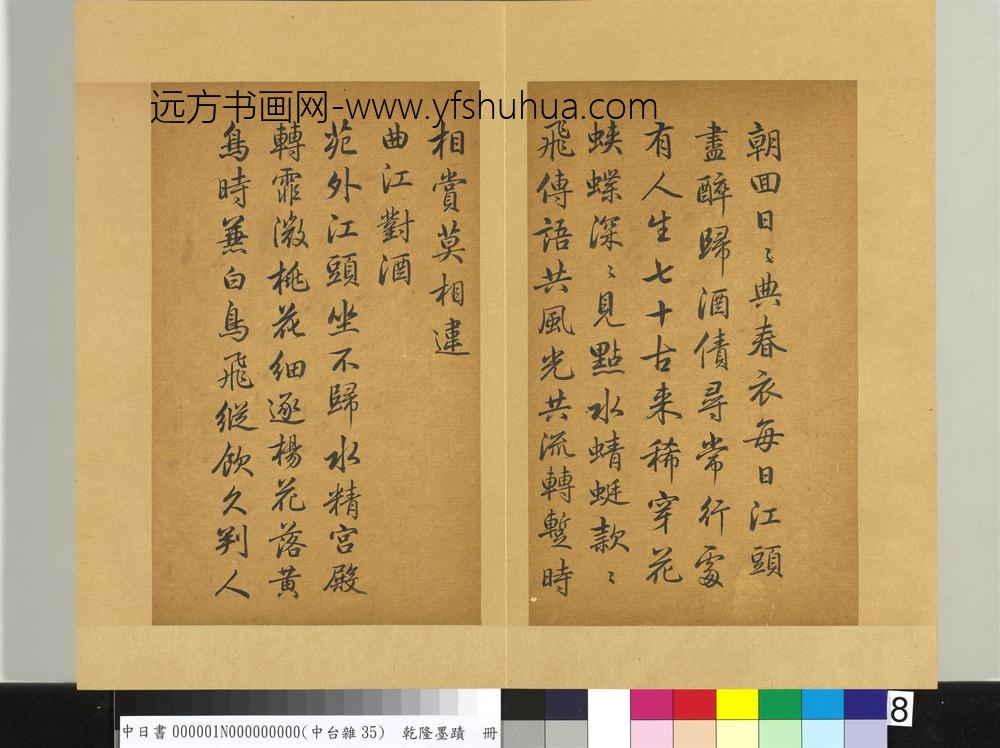 远方书画网-www.yfshuhua.com
朝回日〻典春衣每日江頭
盡醉歸酒債尋常行處
有人生七十古来稀穿花
蛺蝶深〻見點水蜻蜓款〻
飛傳語共風光共流轉蹔時
相賞莫相違
曲江對酒
苑外江頭坐不歸水精宮殿
轉霏微桃花細逐楊花落黃
鳥時蕪白鳥飛縱飲久判人
中日書 000001N000000000(中台雜 35) 乾隆墨蹟 冊
8